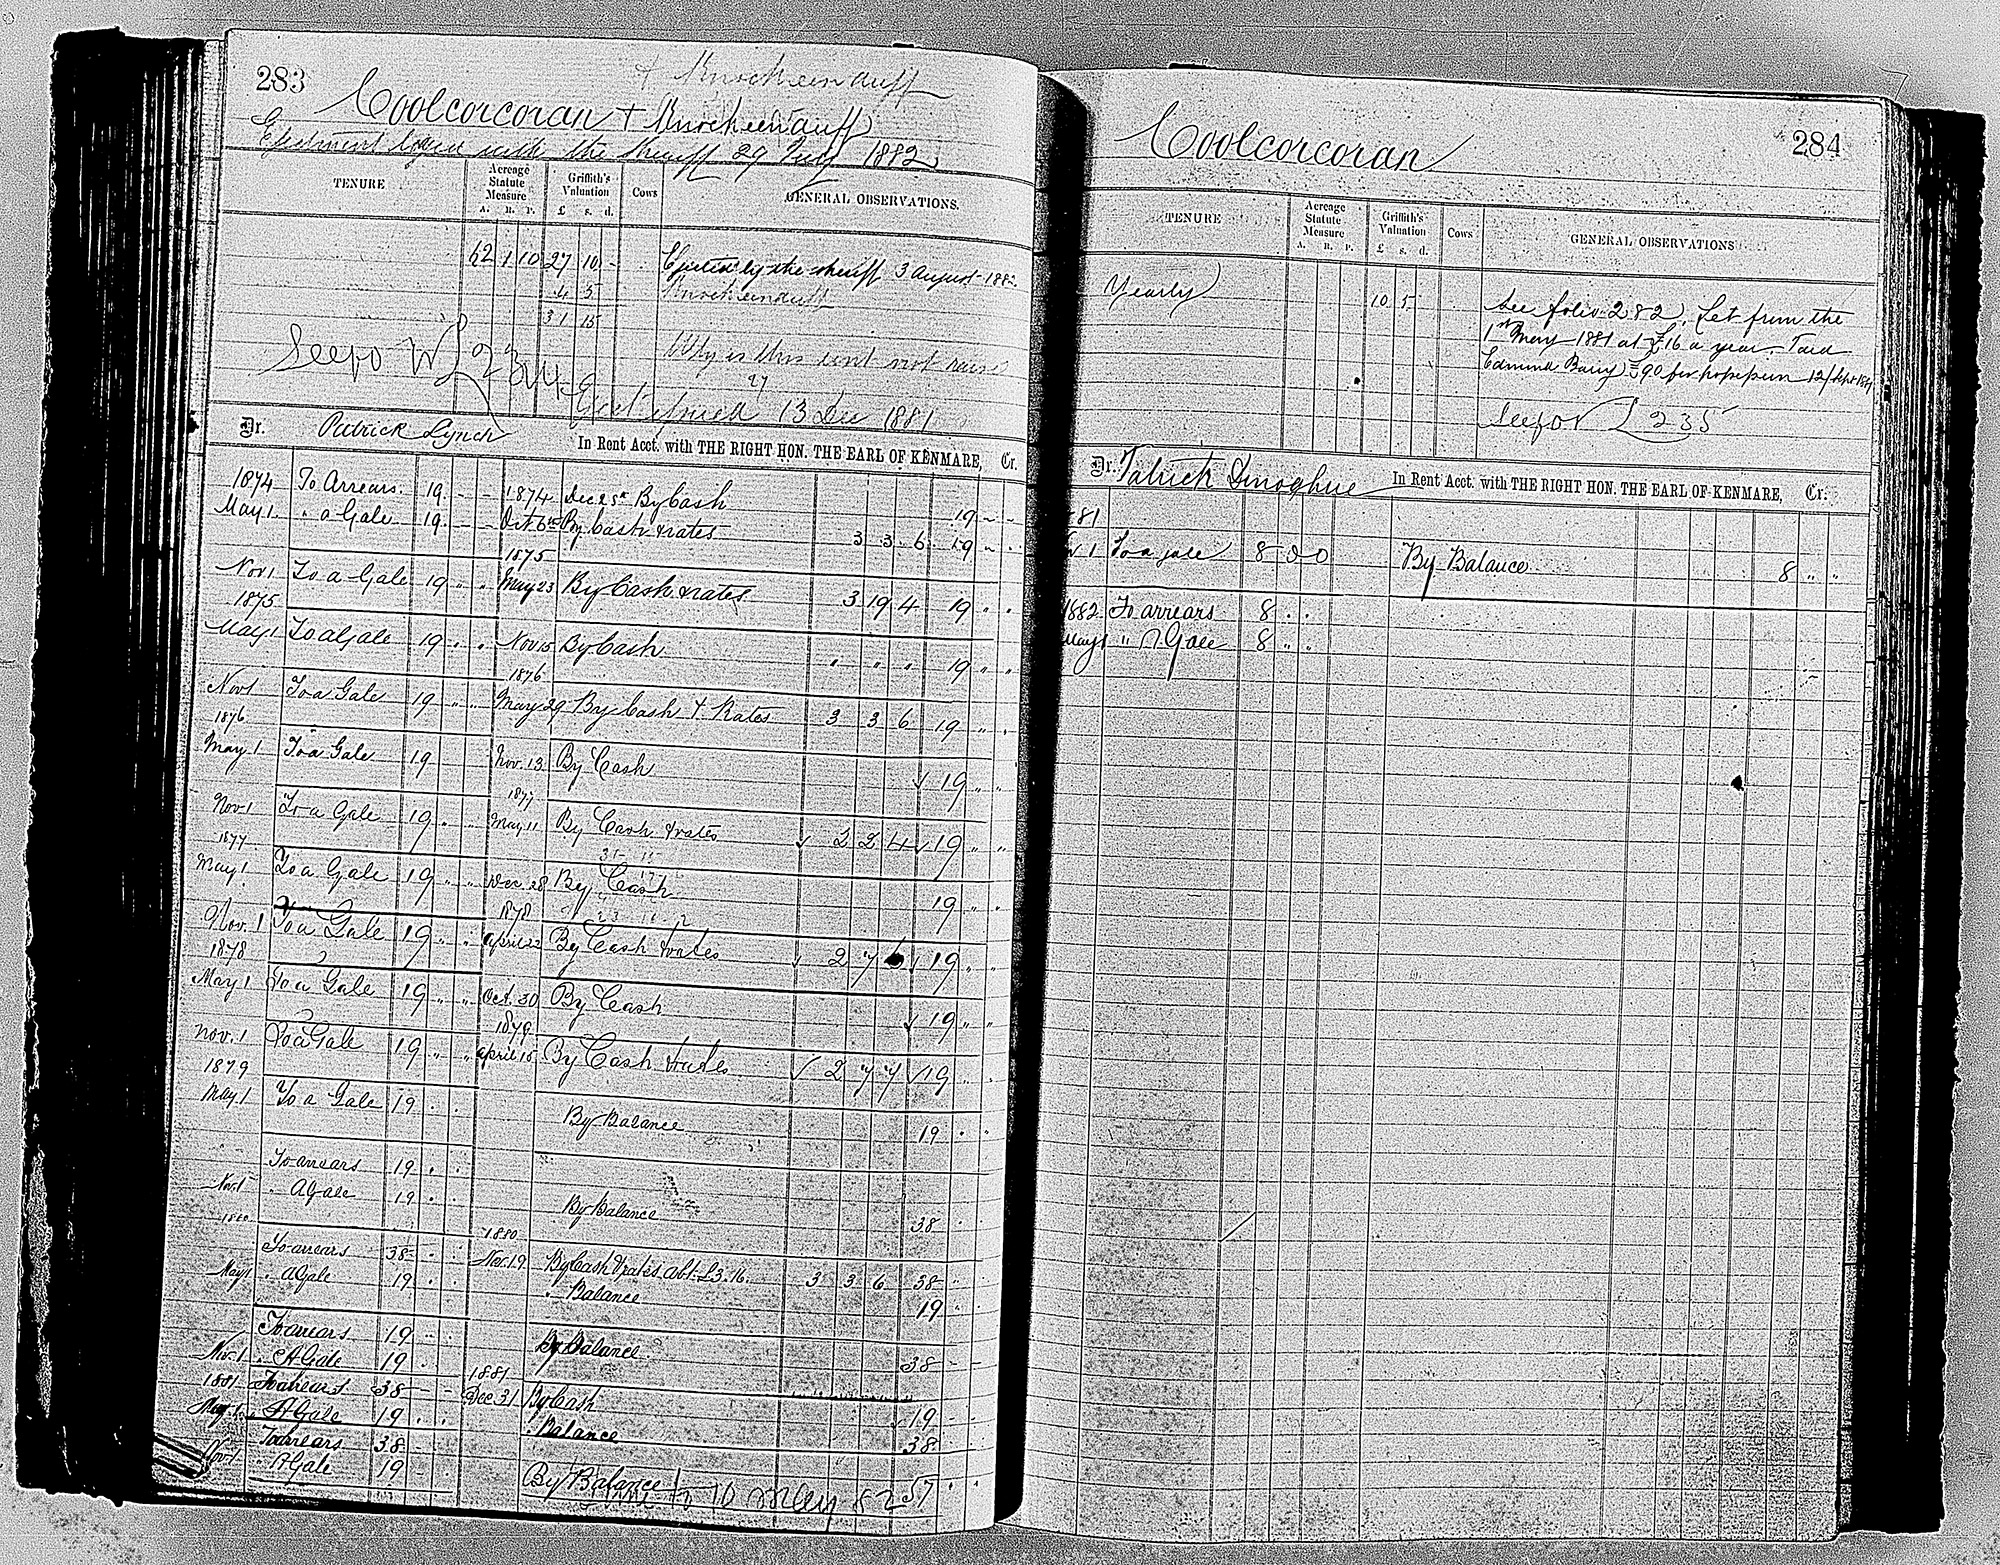 283
+ Knockeenduff
Coolcorcoran + Knockeenduff
Ejectment lodged with the sheriff 29 July 1882
TENURE
Acreage Statute Measure
A. R. P.
Griffith's Valuation
£ s. d.
Cows
GENERAL OBSERVATIONS.
62 1 10 27 10 - Ejected by the sheriff 3 August 1882
4 5 Knockeenduff
31 15
Why is this rent not raised
See fo
Eject served 13 Dec 1881
Dr. Patrick Lynch In Rent Acct. with THE RIGHT HON. THE EARL OF KENMARE, Cr.
1874 To Arrears. 19 - - 1874 Dec 25th By Cash 19 - -
May 1. " a Gale 19 - - Oct. 6th By Cash & rates 3 3 6 19 " "
1875
Nov 1 To a Gale 19 " " May 23 By Cash & rates 3 19 4 19 " "
1875
May 1 To a Gale 19 " " Nov 15 By Cash " " " 19 " "
1876
Nov 1 To a Gale 19 " " May 29 By Cash & Rates 3 3 6 19 " "
1876
May 1 To a Gale 19 Nov. 13 By Cash 19 " "
1877
Nov 1 To a Gale 19 " " May 11 By Cash & rates 2 2 4 19 " "
1877
May 1 To a Gale 19 " " Dec 28 By Cash 19 " "
1878
Nov. 1 To a Gale 19 " " April 22 By Cash & rates 2 7 6 19 " "
1878
May 1 To a Gale 19 " " Oct. 30 By Cash 19 " "
1879
Nov. 1 To a Gale 19 " " April 15 By Cash & rates 2 7 7 19 " "
1879
May 1 To a Gale 19 " " By Balance 19 " "
To arrears 19 " "
Nov. 1 " A Gale 19 " " By Balance 38 " "
1880 1880
To arrears 38 " " Nov. 19 By Cash & rates abt. £3.16. 3 3 6 38 " "
May 1 " A Gale 19 " " " Balance 19 " "
To arrears 19 " "
Nov. 1 " A Gale 19 " By Balance 38 - -
1881 1881
To arrears 38 - - Dec 31 By Cash 19 - -
May 1. " A Gale 19 " " " Balance 38 " "
To arrears 38 - -
Nov 1 " A Gale 19 - " By Balance 57 " "
to 10 May 82
284
Coolcorcoran
TENURE
Acreage Statute Measure
A. R. P.
Griffith's Valuation
£ s. d.
Cows
GENERAL OBSERVATIONS
Yearly 10 5 See folio 282. Let from the
1st May 1881 at £16 a year. Paid
Edmund Barry £90 for 12/Sept 1881
See for L 235
Dr. Patrick Donoghue In Rent Acct. with THE RIGHT HON. THE EARL OF KENMARE, Cr.
81
1 To a gale 8 0 0 By Balance 8 " "
1882 To arrears 8 " "
May 1 " A Gale 8 " "